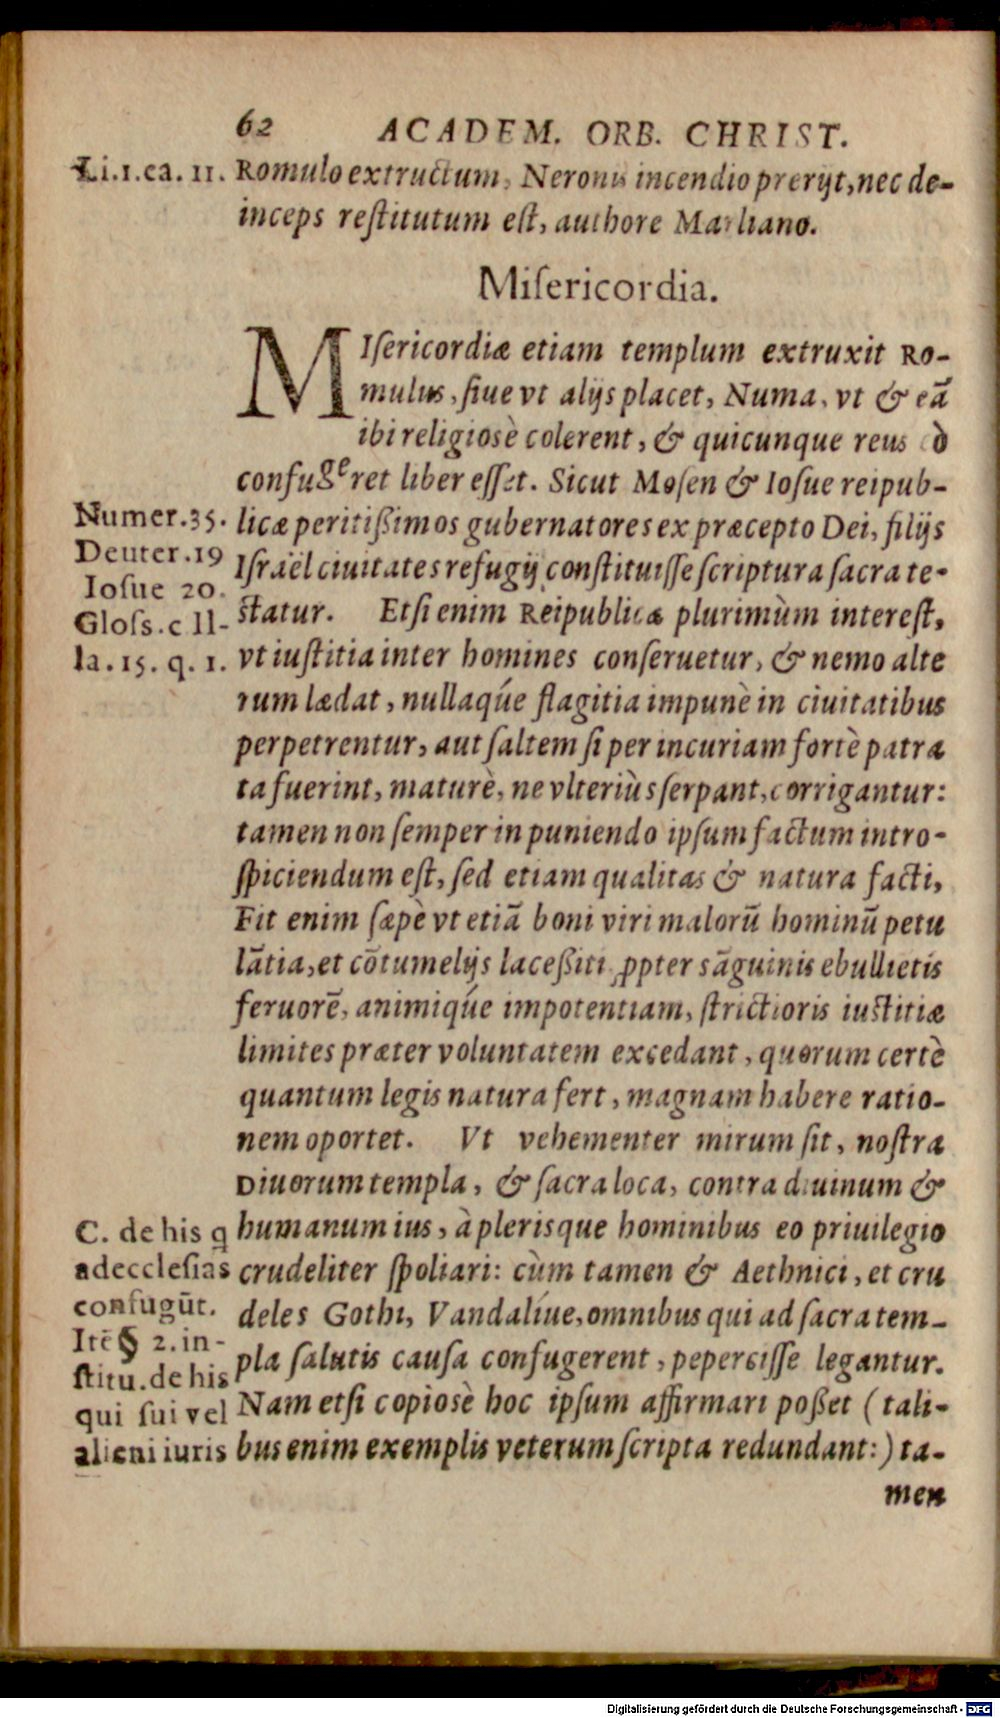 62 ACADEM. ORB. CHRIST.
Li.1.ca. 11.
Romulo extructum, Neronis incendio prerijt, nec de-
inceps reſtitutum eſt, authore Marliano.
Miſericordia.
MIſericordiæ etiam templum extruxit Ro-
mulus, ſiue vt alijs placet, Numa, vt & eā
ibi religiosè colerent, & quicunque reus eò
confugeret liber eſſet. Sicut Moſen & Ioſue reipub-
Numer.35.
Deuter.19
Ioſue 20.
Gloſs.c ll-
la. 15. q. 1.
licæ peritißimos gubernatores ex præcepto Dei, filijs
Iſraël ciuitates refugij conſtituiſſe ſcriptura ſacra te-
ſtatur. Etſi enim Reipublicæ plurimùm intereſt,
vt iuſtitia inter homines conſeruetur, & nemo alte
rum lædat, nullaqúe flagitia impunè in ciuitatibus
perpetrentur, aut ſaltem ſi per incuriam fortè patra
ta fuerint, maturè, ne vlteriùs ſerpant, corrigantur:
tamen non ſemper in puniendo ipſum factum intro-
ſpiciendum eſt, ſed etiam qualitas & natura facti,
Fit enim ſæpè vt etiā boni viri malorū hominū petu
lātia, et cōtumelijs laceßiti ꝓpter sāguinis ebullietis
feruorē, animiqúe impotentiam, ſtrictioris iuſtitiæ
limites præter voluntatem excedant, quorum certè
quantum legis natura fert, magnam habere ratio-
nem oportet. Vt vehementer mirum ſit, noſtra
Diuorum templa, & ſacra loca, contra diuinum &
C. de his q
adeccleſias
confugūt.
Itē § 2. in-
ſtitu. de his
qui ſui vel
alieni iuris
humanum ius, à plerisque hominibus eo priuilegio
crudeliter ſpoliari: cùm tamen & Aethnici, et cru
deles Gothi, Vandalíue, omnibus qui ad ſacra tem-
pla ſalutis cauſa confugerent, peperciſſe legantur.
Nam etſi copiosè hoc ipſum affirmari poßet ( tali-
bus enim exemplis veterum ſcripta redundant:) ta-
men
Digitalisierung gefördert durch die Deutsche Forschungsgemeinschaft - DFG